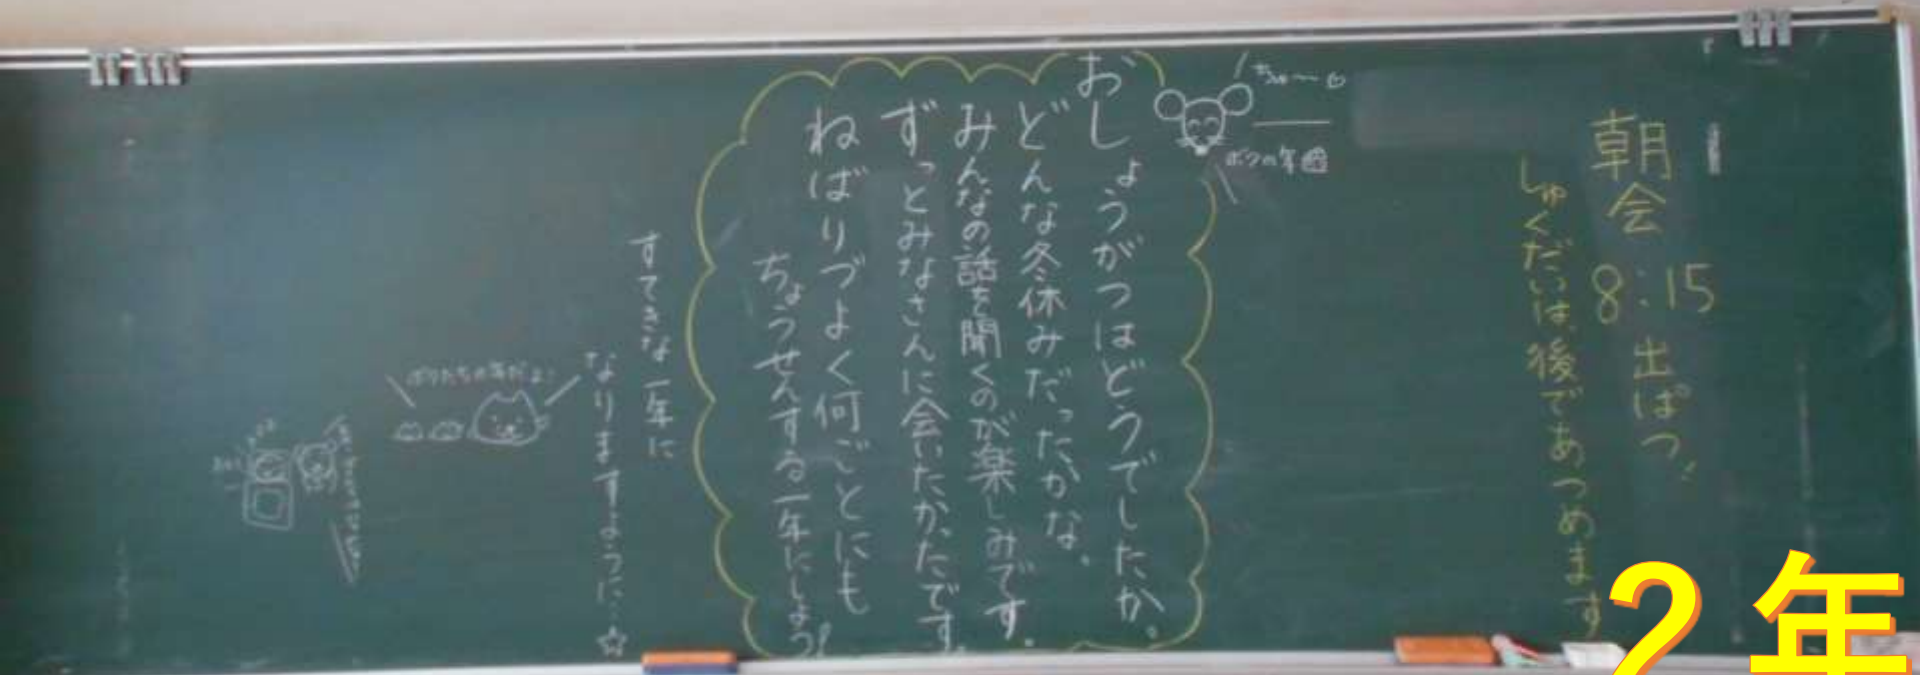 朝会 8:15 出ぱつ!
しゅくだいは、後であつめます
ちゅ〜〜
ボクの年
おしょうがつはどうでしたか。
どんな冬休みだったかな。
みんなの話を聞くのが楽しみです。
ずっとみなさんに会いたかったです。
ねばりづよく何ごとにも
ちょうせんする一年にしよう!
すてきな一年に
なりますように…☆
ボクたちの年だよ!
2年